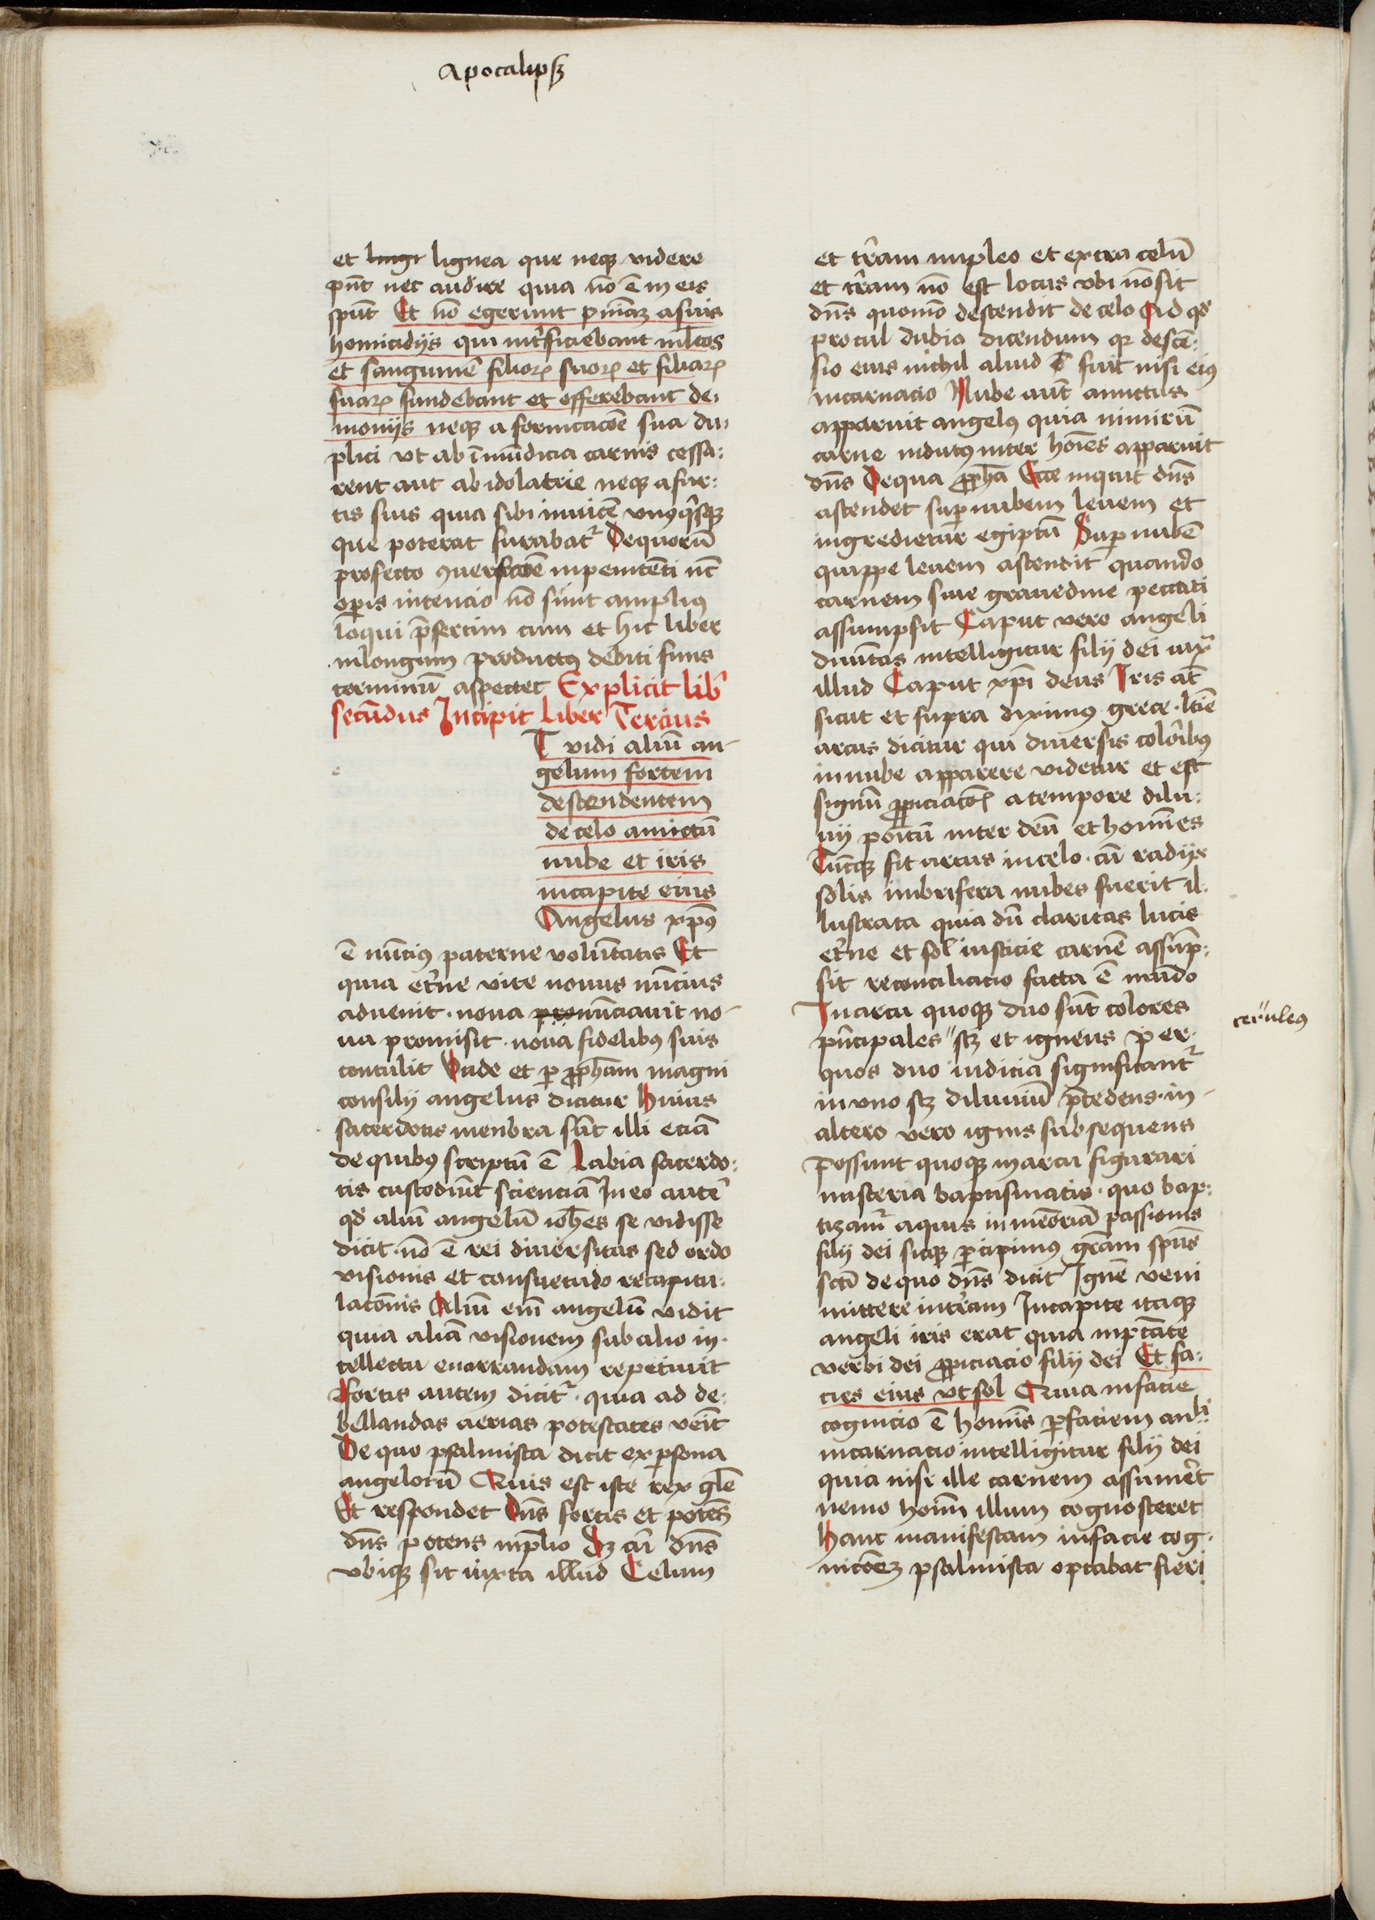 Apocalipsꝫ
et lingr lignea que neqꝫ videre
pn̄t nec audire quia nō ē in eis
spūs Et nō egerunt pn̄iaꝫ a suis
homicidijs qui int̄ficiebant ml̄tos
et sanguinē filioꝝ suoꝝ et filiaꝝ
suaꝝ fundebant et offerebant de⸗
monijs neqꝫ a fornicacōe sua du⸗
plici vt ab īmūdicia carnis cessa⸗
rent aut ab idolatrie neqꝫ a fur⸗
tis suis quia sibi inuicē vnꝰqⁱsqꝫ
que poterat furabatᷣ De quorū
profecto ꝯuersacōe inpenitēti nc̄
oꝑis intencio nō sūnt ampliꝰ
loqui p̄sertim cum et hic liber
in longum productꝰ debiti finis
terminū aspectet Explicit lib᷑
secūdus Incipit liber Tercius
T vidi aliū an-
gelum fortem
descendentem
de celo amictū
nube et iris
in capite eius
Angelus xp̄us
ē nūciꝰ paterne volūtatis Et
quia et̄ne vite nouus nūcius
aduenit · noua pronūciauit no-
ua promisit · noua fidelibꝰ suis
contulit Vnde et ꝑ ꝓph̄am magni
consilij angelus dicitur Huius
sacerdotis menbra sūt illi eciā
de quibꝰ scriptū ē Labia sacerdo⸗
tis custodiūt scienciā In eo autē
qd̄ aliū angelū ioh̄es se vidisse
dicit · nō ē rei diuersitas sed ordo
visionis et consuetudo recapitu⸗
lacōnis Aliū em̄ angelū vidit
quia aliā visionem sub alio in-
tellectu enarrandam repetiuit
Fortis autem dicitᷣ · quia ad de⸗
bellandas aerias potestates veīt
De quo psalmista dicit ex ꝑsona
angelorū Quis est iste rex gl̄e
Et respondet Dn̄s fortis et potēs
dn̄s potens in p̄lio Sꝫ cū dn̄s
vbiqꝫ sit iuxta illud Celum
et t̄ram impleo et extra celū
et t̄ram nō est locus vbi nō sit
dn̄s quomō descendit de celo Ad qd̄
procul dubio dicendum qꝛ descē⸗
sio eius nichil aliud fuit nisi eiꝰ
incarnacio Nube aūt amictus
apparuit angelꝰ quia nimirū
carne indutꝰ inter hoīes apparuit
dn̄s De qua ꝓph̄a Ecce inquit dn̄s
ascendet suꝑ nubem leuem et
ingredietur egiptū Suꝑ nubē
quippe leuem ascendit quando
carnem sine grauedine peccati
assumpsit Caput vero angeli
diuītas intelligitur filij dei iuxᵃ
illud Caput xp̄i deus Iris aūt
sicut et supra diximꝰ grece · lat̄ie
arcus dicitur qui diuersis coloribꝰ
in nube apparere videtur et est
signū ꝓpiciacōis a tempore dilu⸗
uij poītū inter deū et homines
Tūcqꝫ fit arcus in celo · cū radijs
solis imbrifera nubes fuerit il⸗
lustrata quia dū claritas lucis
et̄ne et sol iusticie carnē assūp⸗
sit reconciliacio facta ē mūdo
In arcu quoqꝫ duo sūt colores
pⁿcipales " sꝫ et igneus per-
ceruleꝰ
quos duo iudicia significantᷣ
in vno sꝫ diluuiū p̄cedens · in-
altero vero ignis subsequens
Possunt quoqꝫ in arcu figurari
misteria baptismatis · quo bap⸗
tizamᷣ aquis in memoriā passionis
filij dei sicqꝫ ꝑcipimꝰ gr̄am spūs
sctī de quo dn̄s dicit Ignē veni
mittere in t̄ram In capite itaqꝫ
angeli iris erat quia in p̄tāte
verbi dei ꝓpiciacio filij dei Et fa⸗
cies eius vt sol Quia in facie
cognicio ē homīs ꝑ faciem anḡli
incarnacio intelligitur filij dei
quia nisi ille carnem assumer̄t
nemo hoīm illum cognosceret
Hanc manifestam in facie cog-
nicōeꝫ psalmista optabat fieri